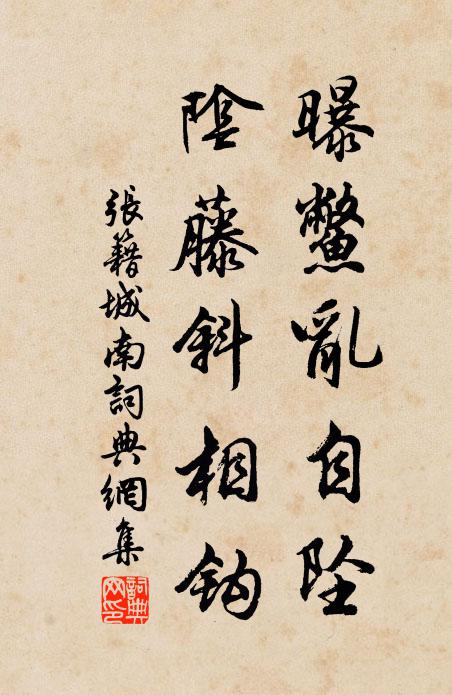 曝鱉亂自墜
陰藤斜相鈎
張籍城南詞典網集
詞典
网印